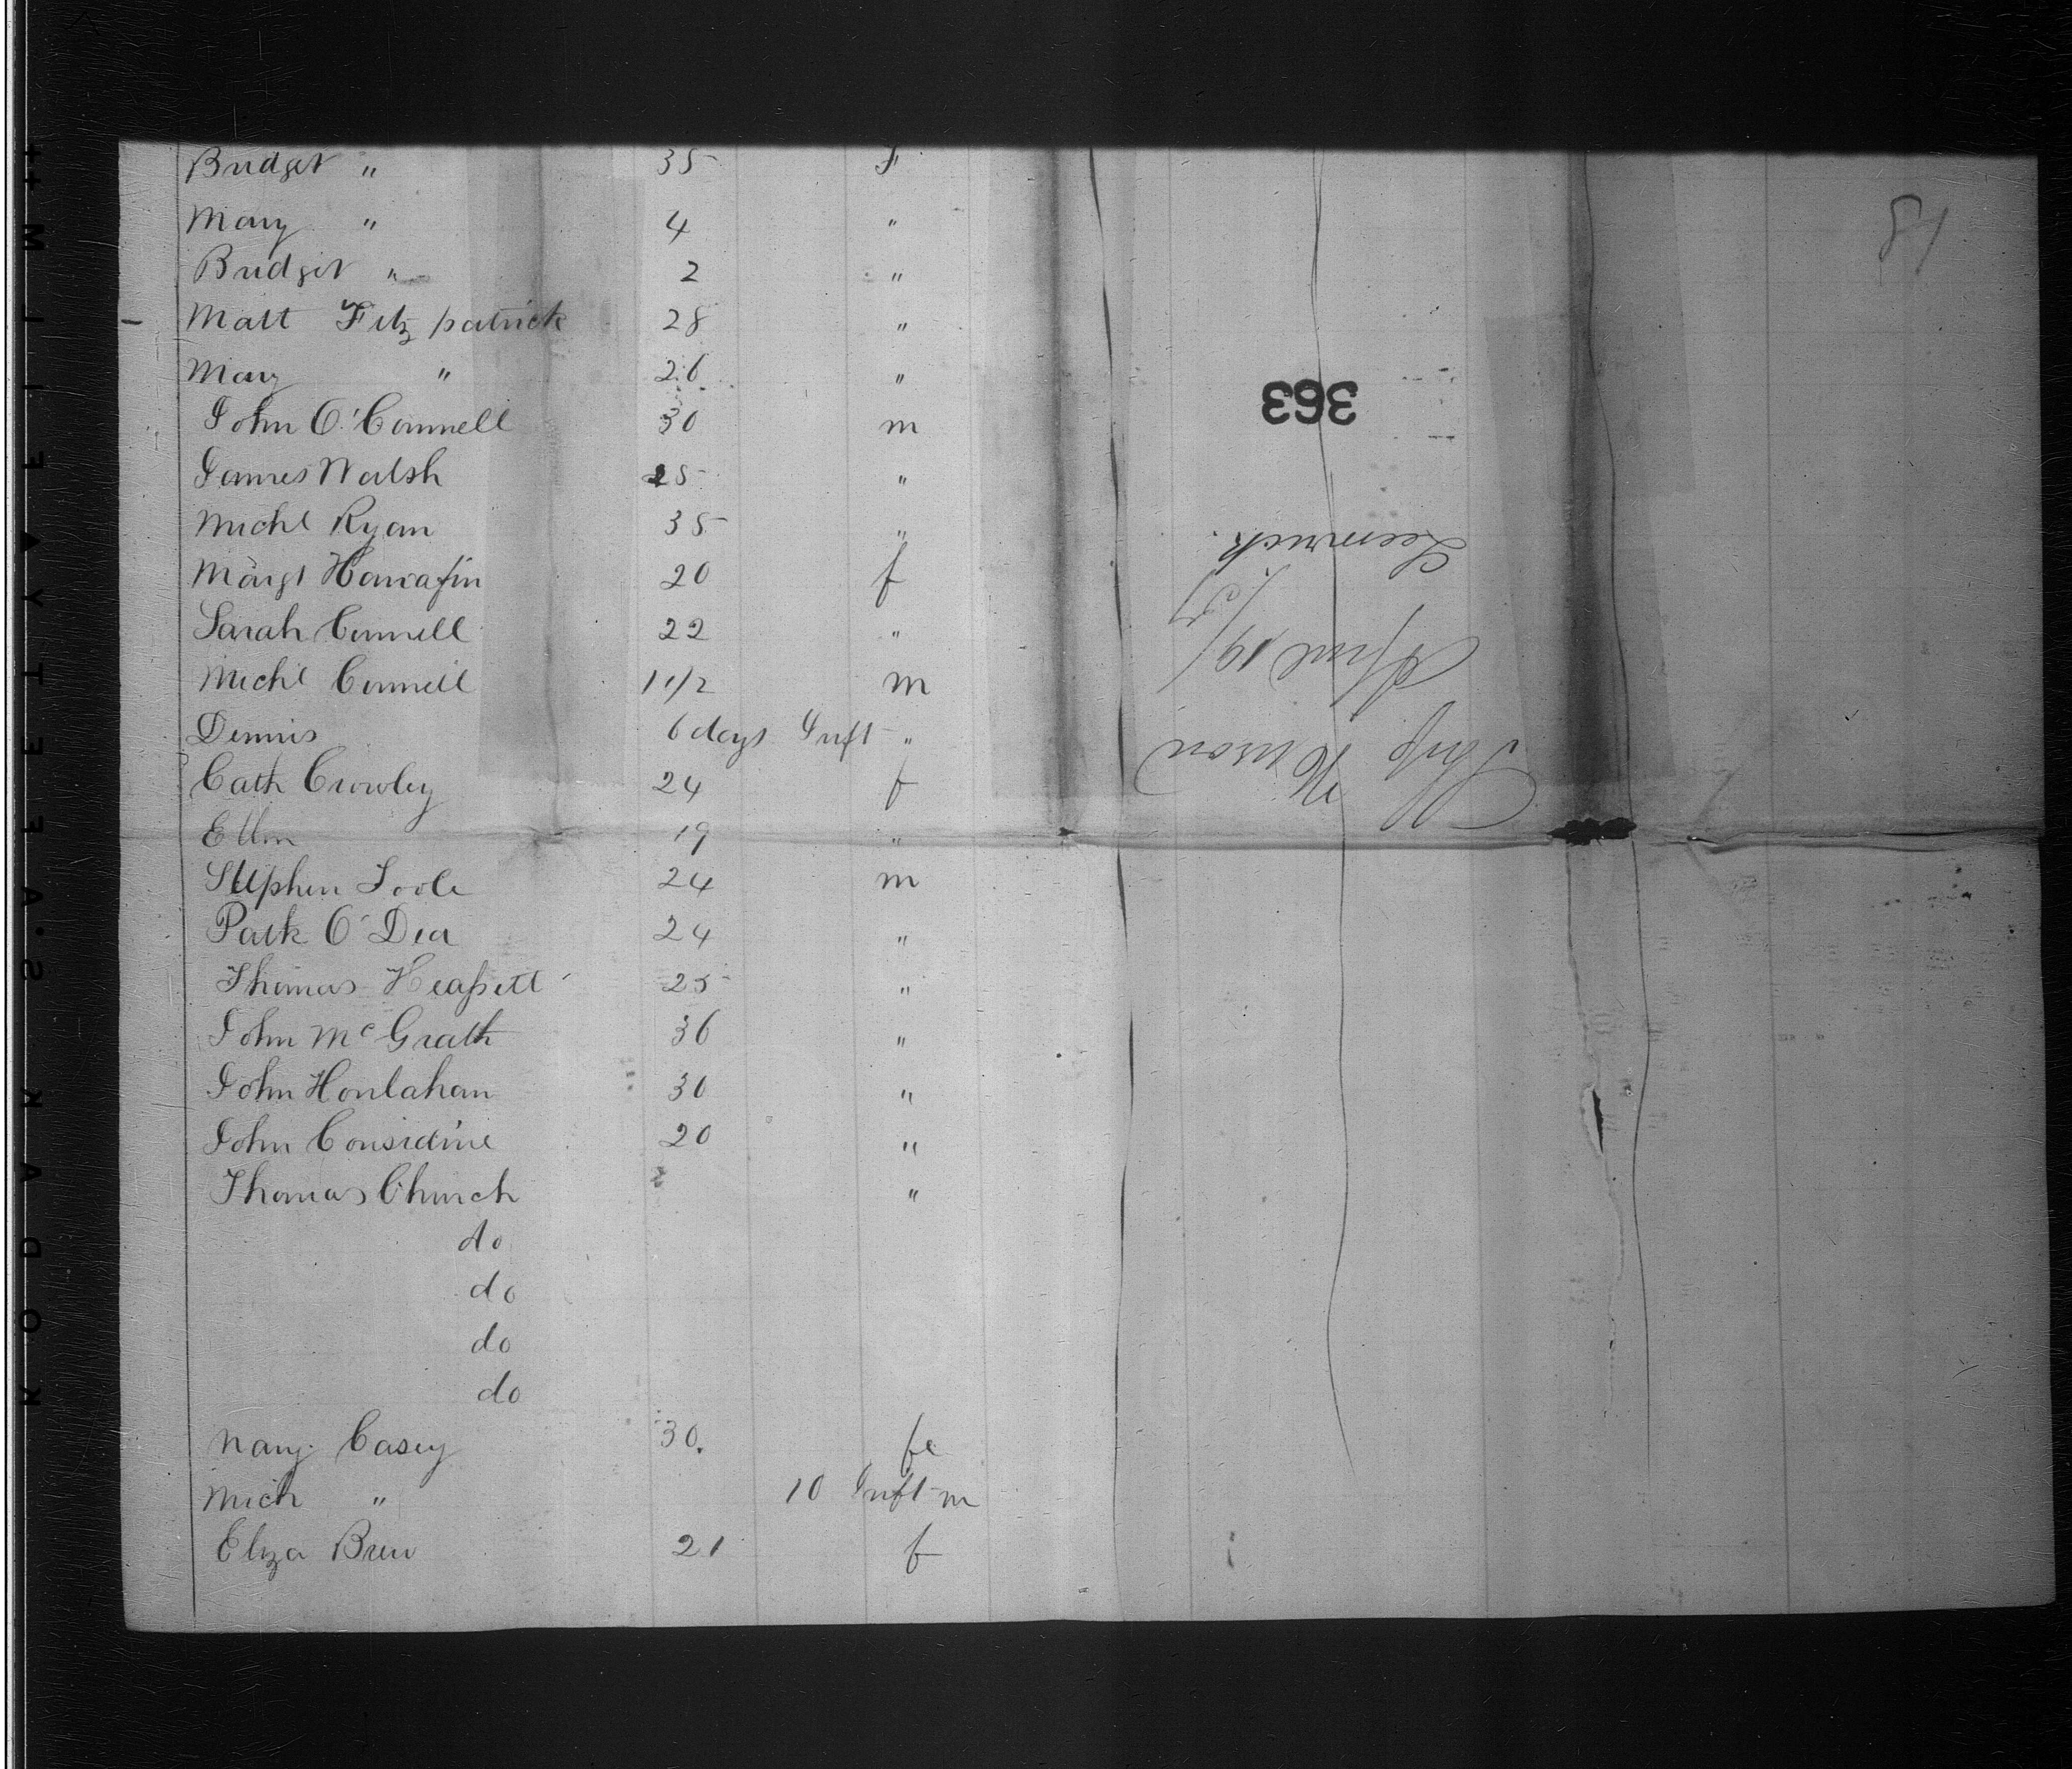 Bridget " 35 F
Mary " 4 "
Bridget " 2 "
Matt Fitzpatrick 28 "
Mary " 26 "
John O'Connell 30 m
James Walsh 25 "
Michl Ryan 35 "
Margt Hanrafin 20 f
Sarah Connell 22 "
Michl Connell 1 1/2 m
Dennis 6 days Inft "
Cath Crowley 24 f
Ellen 19 "
Stephen Toole 24 m
Patk O'Dea 24 "
Thomas 25 "
John McGrath 36 "
John Honlahan 30 "
John Considine 20 "
Thomas Church "
do
do
do
do
Nany Casey 30. fe
Mich " 10 Inft m
Eliza Brew 21 f
81
363
Ship
April 19/
Leemrick.
KODAK SAFETY FILM